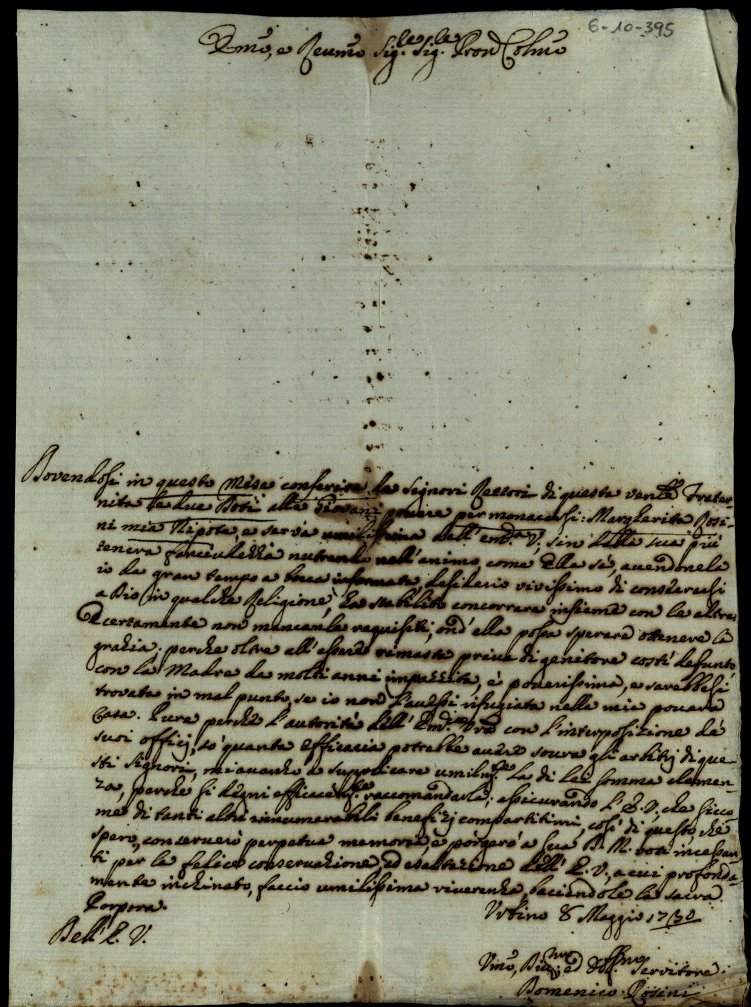 6-10-395
Emo, e Reumo Sig.le Sig.le Pron Colmo
Dovendosi in questo Mese conferire da Signori Rettori di questa ven Frater-
nita le due Doti alle Giovani povere per monacarsi: Margherita Rosi-
ni mia Nipote, e serva umilissima dell'em.a V., sin dalla sua più
tenera fanciulezza nutrendo nell'animo, come Ella sà, avendonela
io da gran tempo a bocca informata, desiderio vivissimo di consecrarsi
a Dio in qualche Religione, ha stabilito concorrere insieme con le altre
E certamente non mancanle requisiti, ond'ella possa sperare ottenere la
grazia: perche oltre all'essere rimasta priva di genitore costì defunto
con la Madre da molti anni impazzita, è poverissima, e sarebbesi
trovata in mal punto, se io non l'avessi rifugiata nella mia povera
Casa. Pure perché l'autorità dell'Em.a Vra con l'interposizione dè
suoi officj, sò quanta efficacia potrebbe avere sovra gli arbitrj di que-
sti Signori, mi avanzo a supplicare umilm.te la di lei somma clemen-
za, perche si degni efficacem.te racomandarla; assicurando l'E. V., che sicco-
me di tanti altri innumerabili beneficj compartitimi, così di questo, che
spero, conserverò perpetua memoria, e porgerò a Sua D. M. voti incessan-
ti per la felice conservazione, ed esaltazione dell'E. V., a cui profonda-
mente inchinato, faccio umilissima riverenza, baciandole la sacra
Porpora.
Urbino 8 Maggio 1730
Dell'E. V.
Umo, Dmo ed Obb.mo Servitore
Domenico Rosini